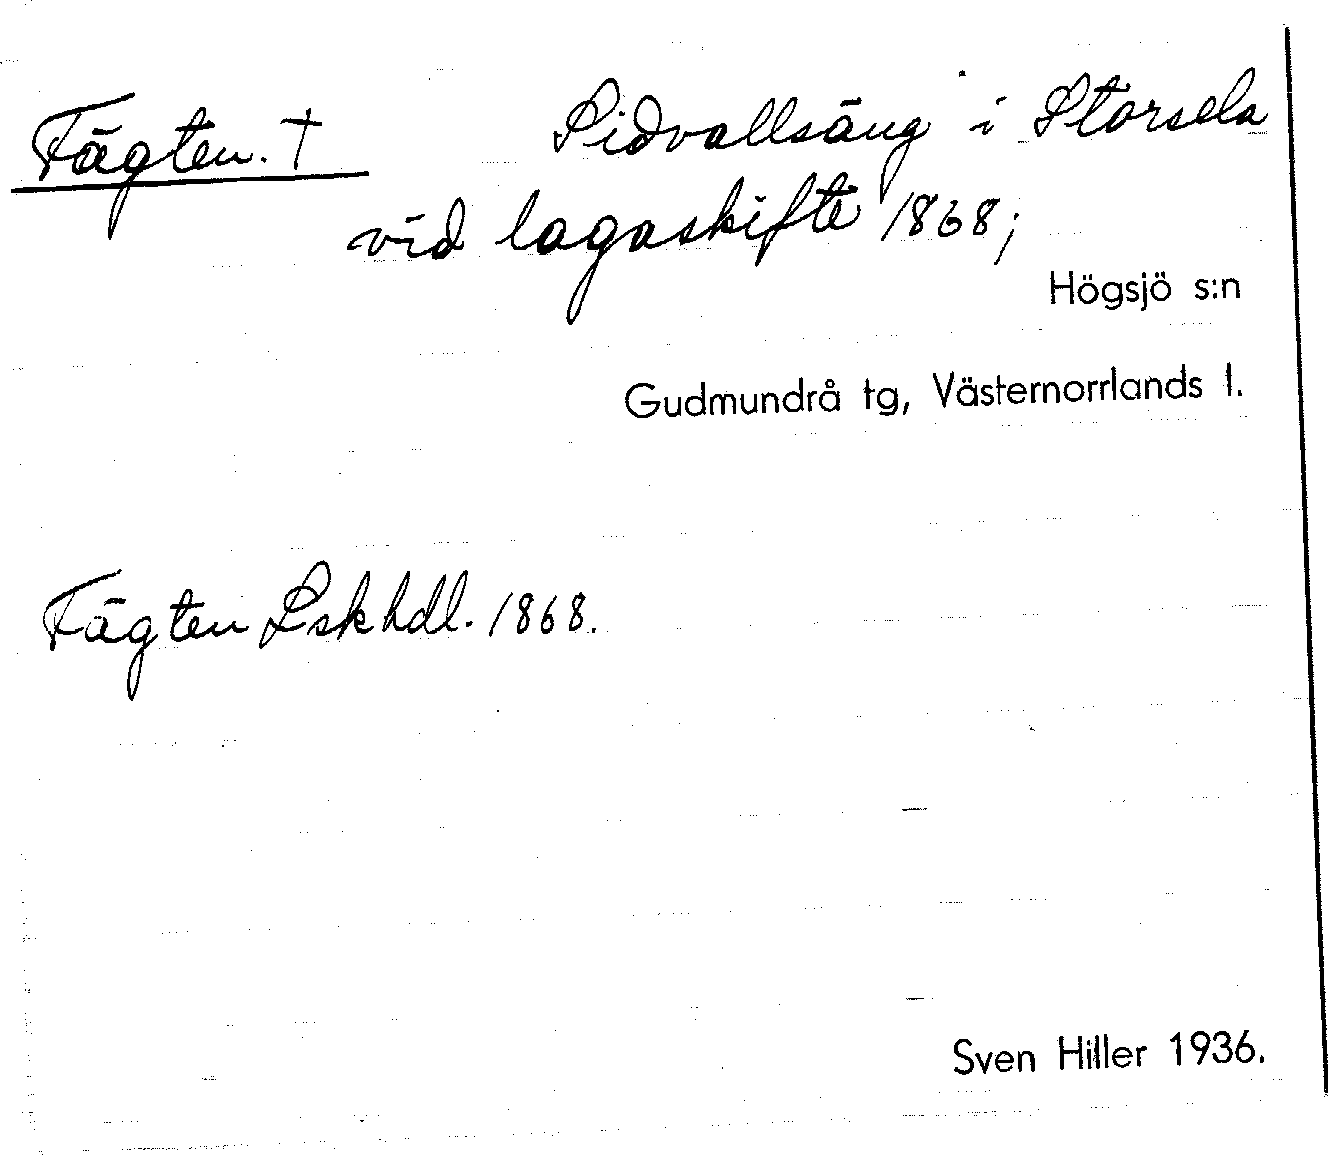 Fägten. † Sidvallsäng i Storsela
vid lagaskifte 1868;
Högsjö s:n
Gudmundrå tg, Västernorrlands l.
Fägten Lskhdl. 1868.
Sven Hiller 1936.